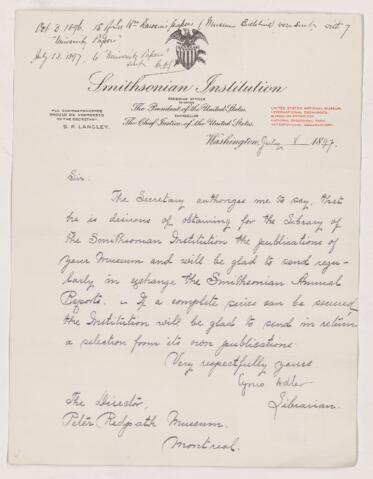 Oct 3. 1896. 15 of Sir Wm Dawson's papers ( Museum
"University Papers"
July 13. 1897. 6 "University Papers"
Smithsonian Institution
PRESIDING OFFICER
The President of the United States.
CHANCELLOR
The Chief Justice of the United States.
ALL CORRESPONDENCE
SHOULD BE ADDRESSED
TO THE SECRETARY,
S. P. LANGLEY.
UNITED STATES NATIONAL MUSEUM.
INTERNATIONAL EXCHANGES.
BUREAU OF ETHNOLOGY.
NATIONAL ZOOLOGICAL PARK.
ASTROPHYSICAL OBSERVATORY.
Washington, July 8 1897.
Sir:
The Secretary authorizes me to say, that
he is desirous of obtaining for the Library of
the Smithsonian Institution the publications of
your Museum and will be glad to send regu-
larly in exchange the Smithsonian Annual
Reports. – If a complete series can be secured
the Institution will be glad to send in return
a selection from its own publications.
Very respectfully yours
Cyrus Adler
Librarian.
The Director,
Peter Redpath Museum.
Montreal.